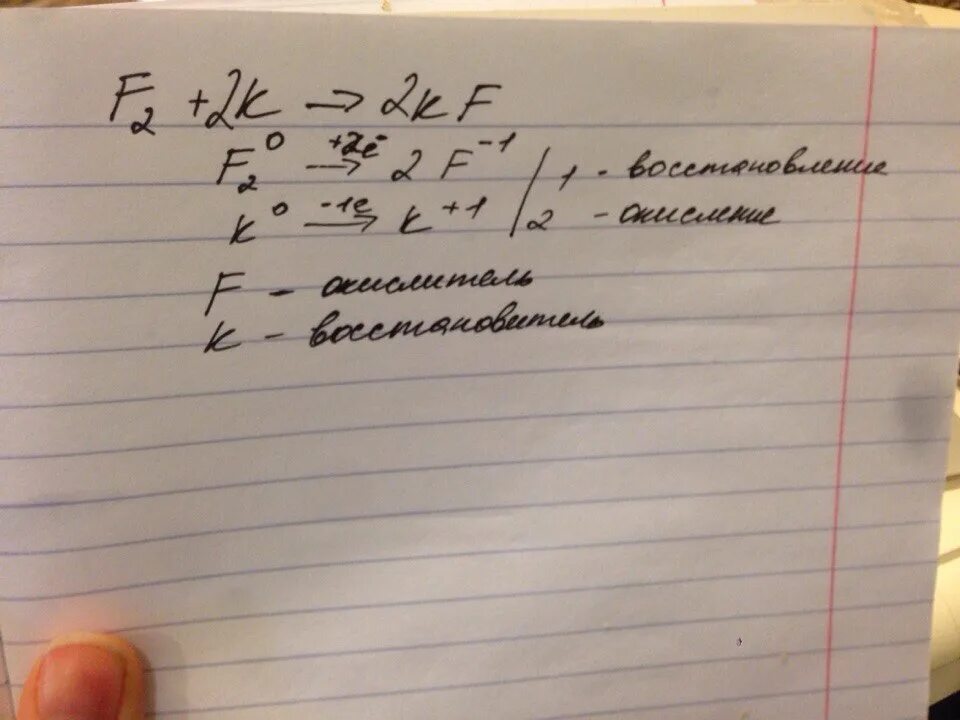 F₂ + 2K → 2KF
F₂⁰ +2ē → 2F⁻¹ | 1 - восстановление
K⁰ -1e → K⁺¹ | 2 - окисление
F - окислитель
K - восстановитель